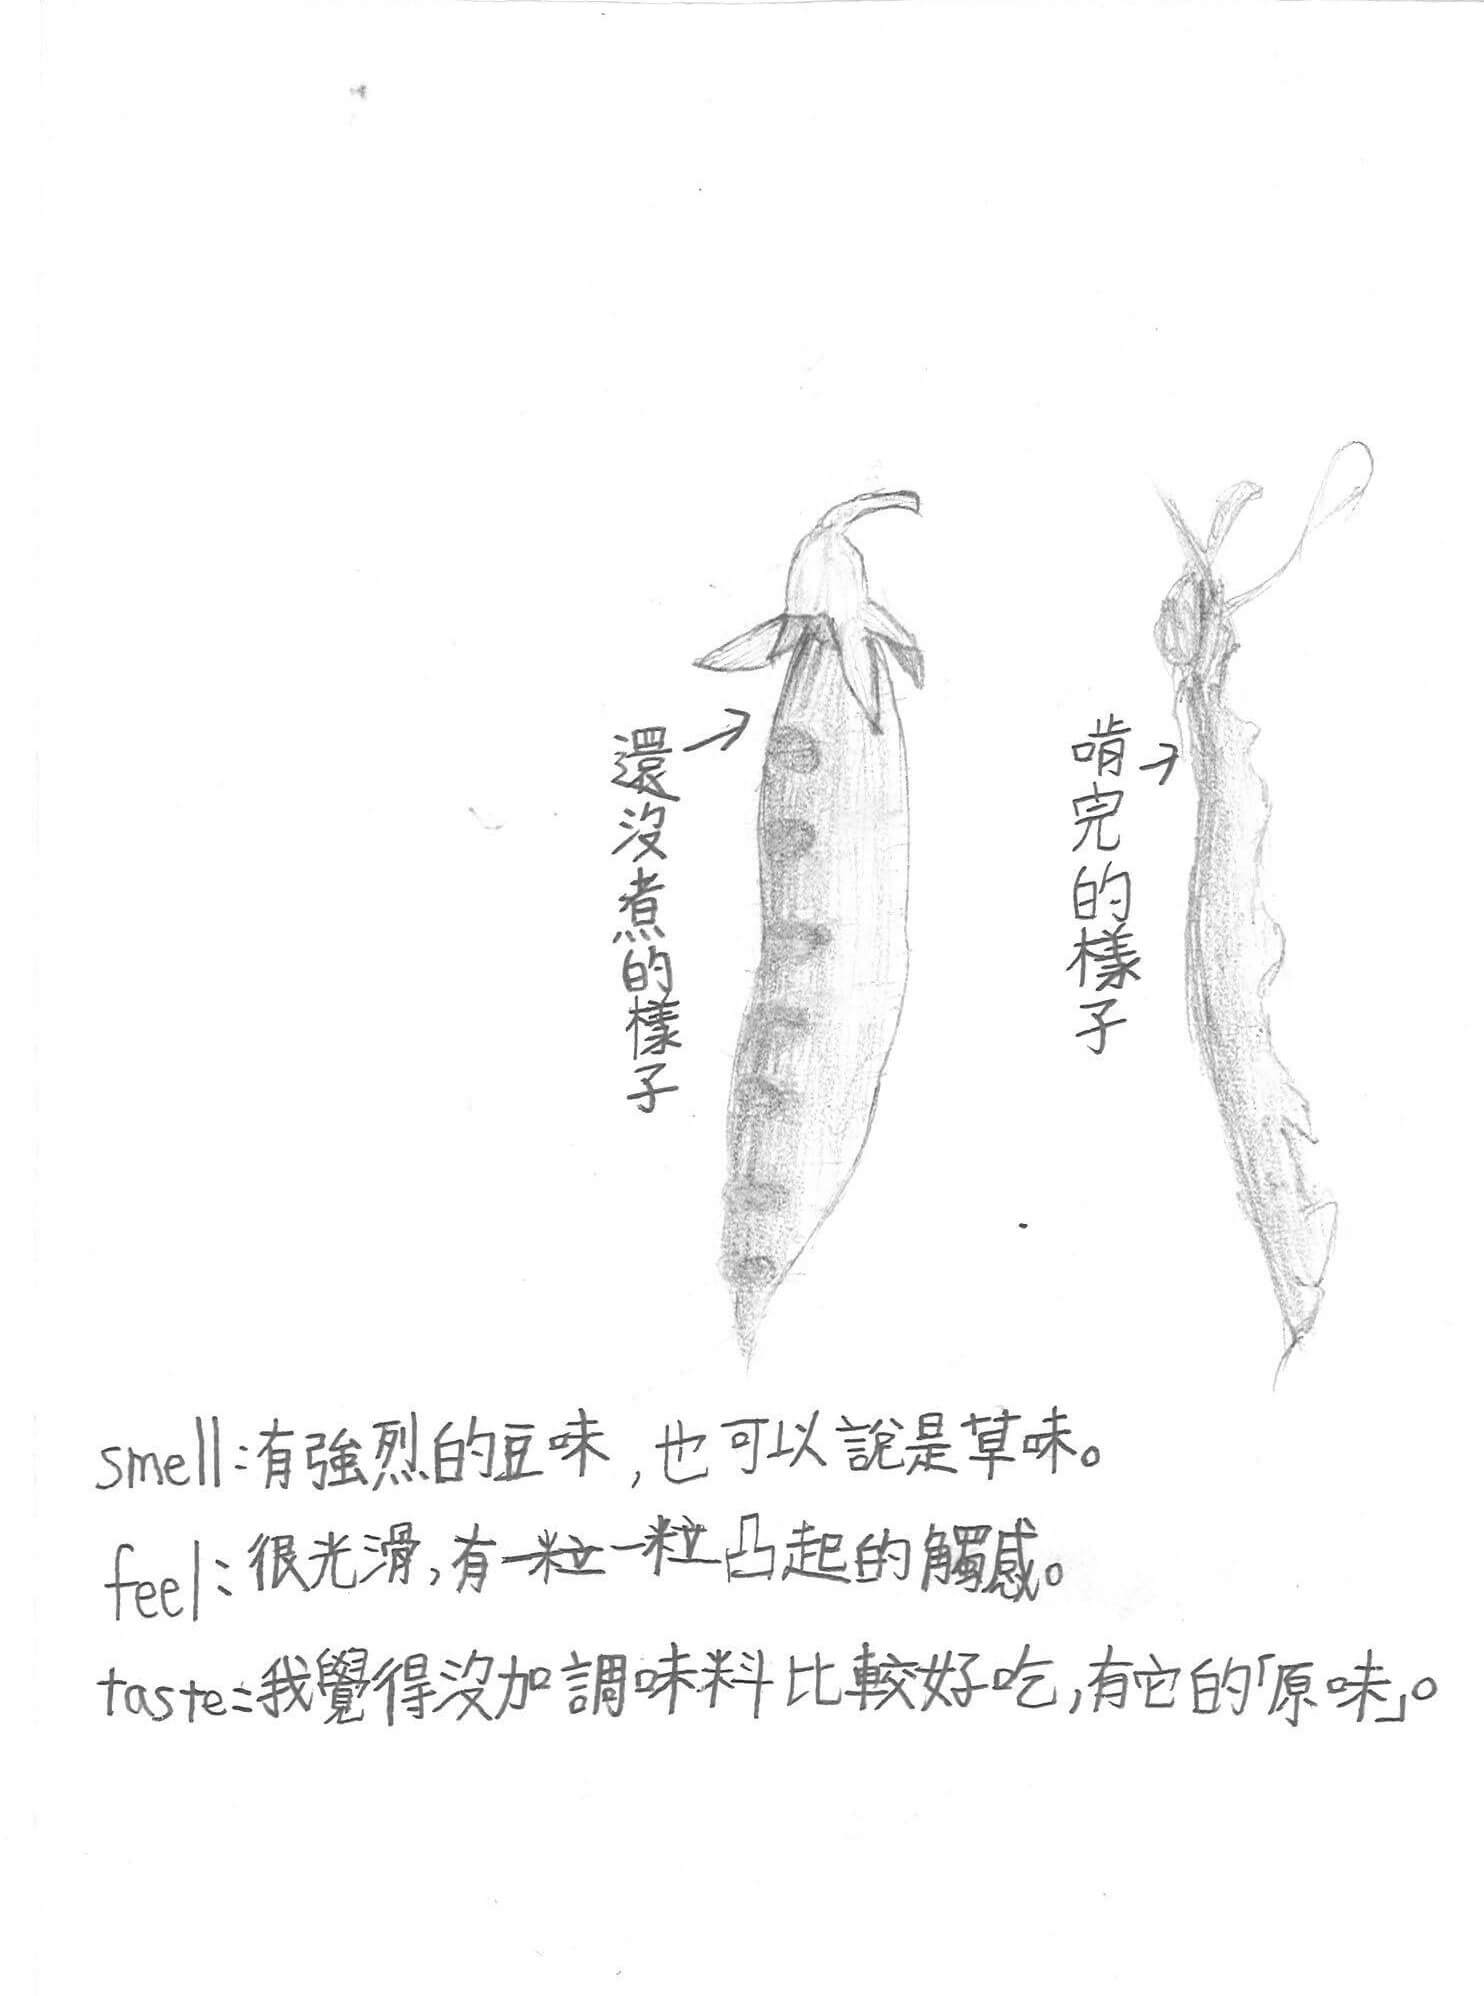 還沒煮的樣子
啃完的樣子
smell:有強烈的豆味,也可以說是草味。
feel:很光滑,有一粒一粒凸起的觸感。
taste:我覺得沒加調味料比較好吃,有它的「原味」。